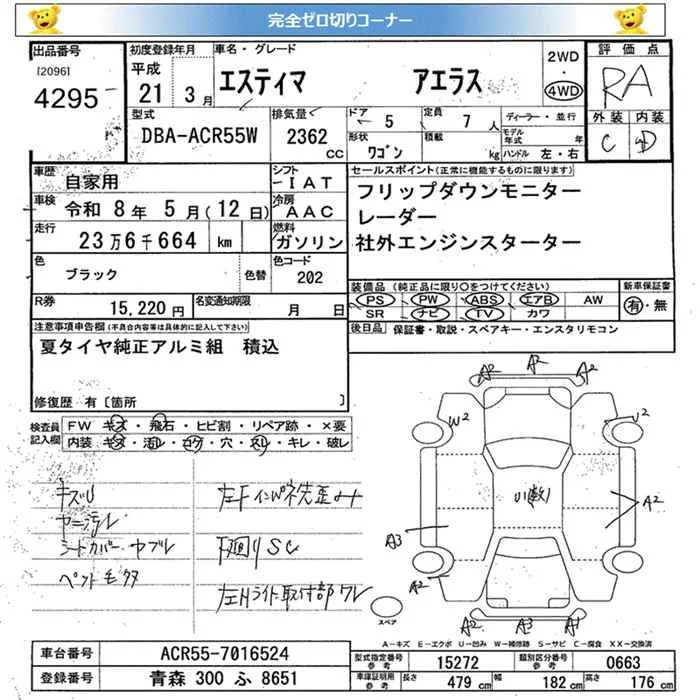 完全ゼロ切りコーナー
出品番号 初度登録年月 車名・グレード 2WD 評価点
[2096] 平成 ・
4295 21 3月 エスティマ アエラス 4WD RA
型式 排気量 ドア 5 定員 7人 ディーラー・並行 外装 内装
DBA-ACR55W 2362 CC 形状 ワゴン 積載 kg モデル年式 年 C D
ハンドル 左・右
車歴 自家用 シフト IAT セールスポイント(正常に機能するものに限ります)
車検 令和 8年 5月(12日) 冷房 AAC フリップダウンモニター
走行 23万6千664 km 燃料 ガソリン レーダー
社外エンジンスターター
色 ブラック 色替 色コード 202
装備品(純正品に限り○をつけてください) 新車保証書
PS PW ABS エアB AW 有・無
SR ナビ TV カワ
R券 15,220円 名変通知期限 月 日
後日品 保証書・取説・スペアキー・エンスタリモコン
注意事項申告欄(不具合内容等は具体的に記入して下さい)
夏タイヤ純正アルミ組 積込
修復歴 有〔箇所 〕
検査員記入欄 FW キズ・飛石・ヒビ割・リペア跡・×要
内装 キズ・汚れ・コゲ・穴・スレ・キレ・破レ
A2 A2 A2
W2 U2
A2
A3
A2
A2 A3 A1
キズU
ヤニ汚レ
シートカバー・ヤブレ
ペット毛多
下廻りSC
左Hライト取付部ワレ
スペア
A-キズ E-エクボ U-凹み W-補修跡 S-サビ C-腐食 XX-交換済
車台番号 ACR55-7016524
登録番号 青森 300 ふ 8651
型式指定番号参考 15272 類別区分番号参考 0663
車庫証明用参考 長さ 479cm 幅 182cm 高さ 176cm